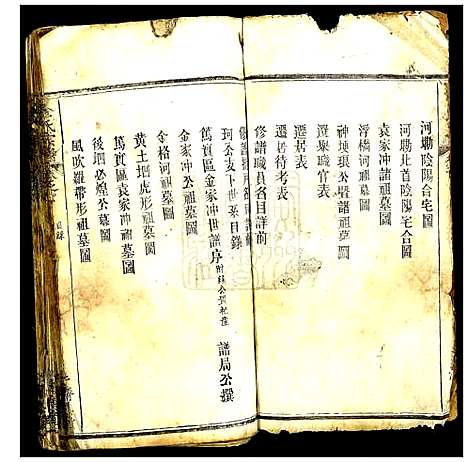 河塘陰陽合宅圖
河塘北首陰陽宅合圖
袁家冲諸祖墓圖
浮橋河祖墓圖
神埂埧公暨諸祖墓圖
選舉職官表
遷居表
遷居待考表
修譜職員名目詳前
珂公支下世系目錄
篤實區金家冲世譜序 諸局公撰
金家冲公祖墓圖
金格河祖墓圖
黃土垇虎形祖墓圖
篤實區袁家冲祖墓圖
後垇必煌公墓圖
風吹羅帶形祖墓圖
目錄